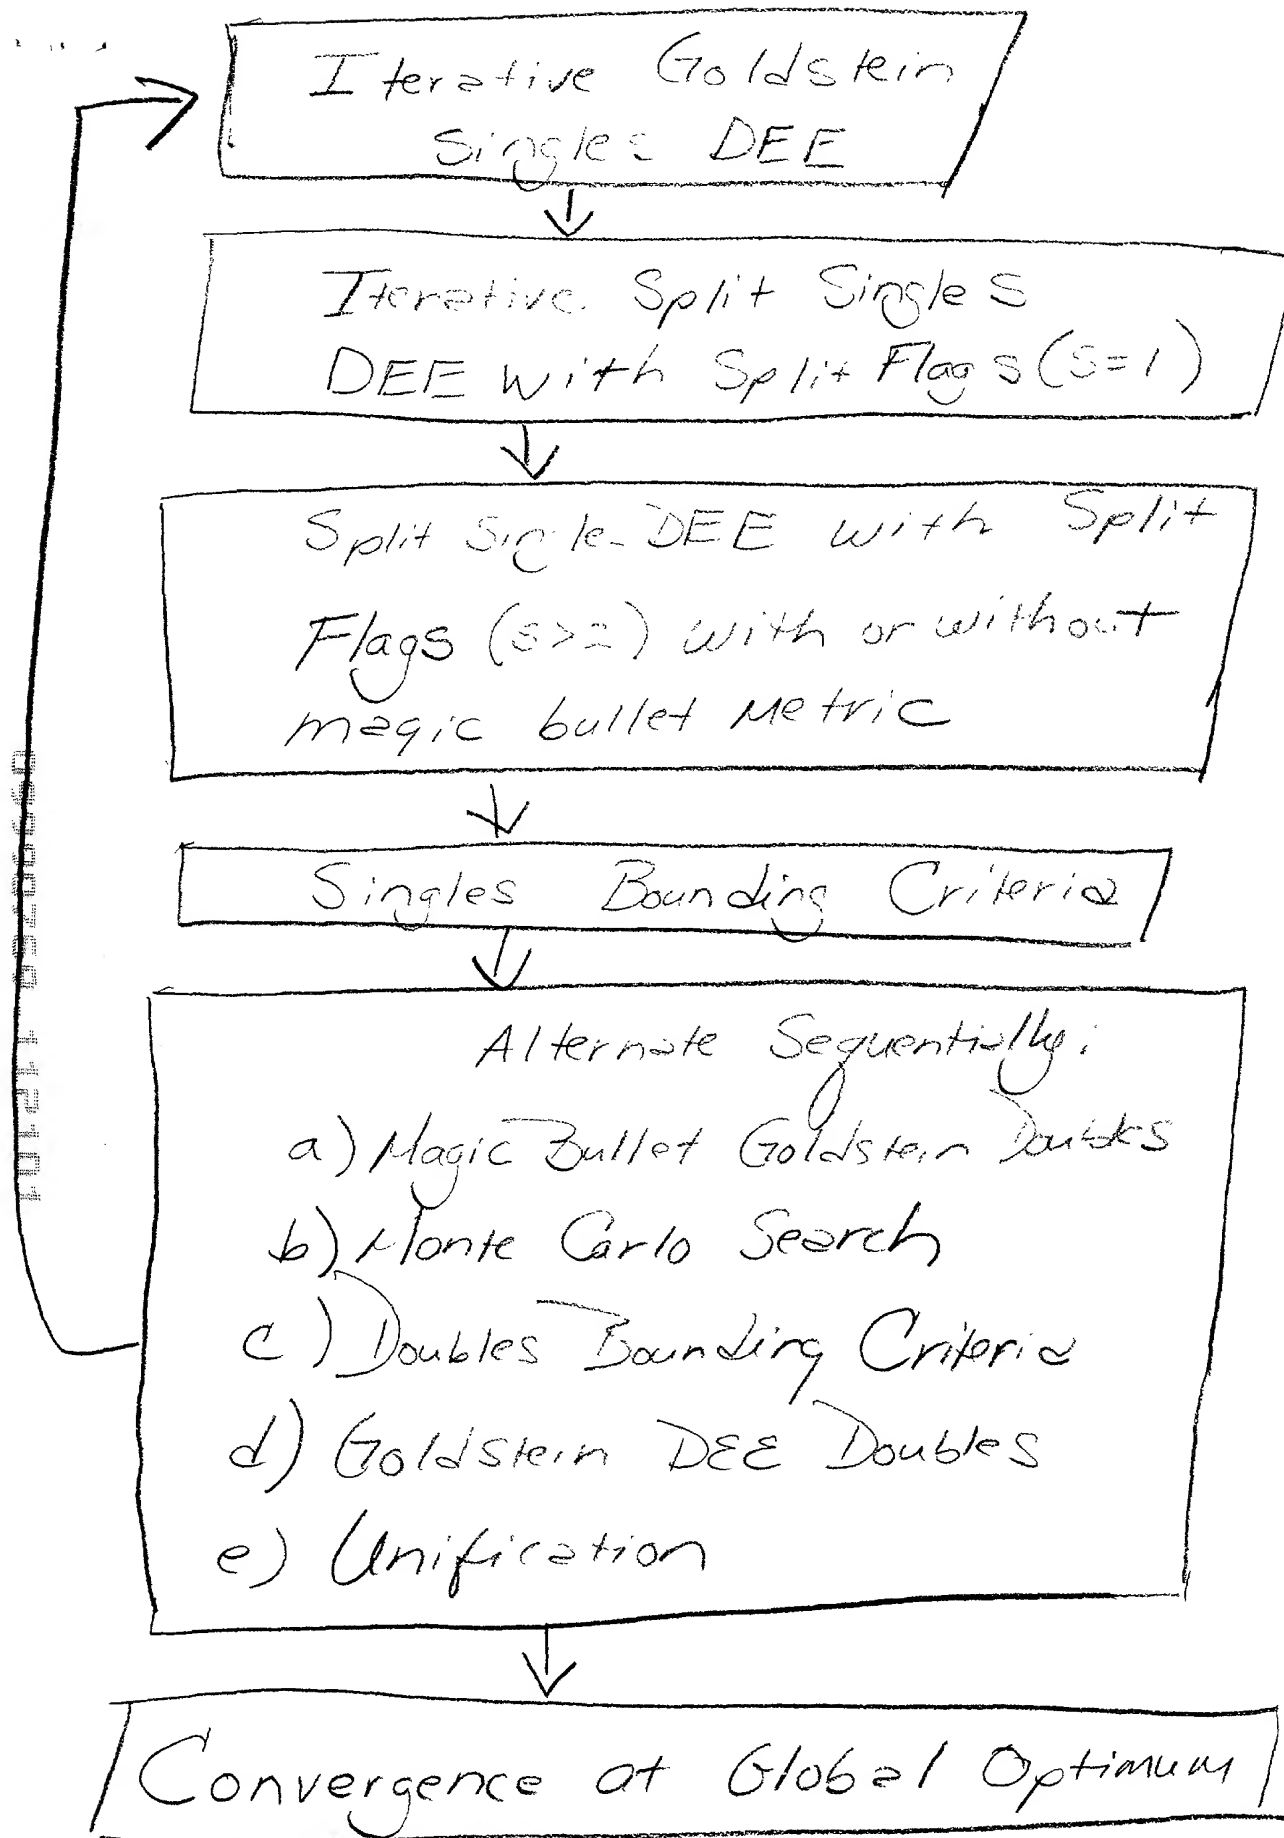 Iterative Goldstein
Singles DEE
Iterative Split Singles
DEE with Split Flags (s=1)
Split Single DEE with Split
Flags (s>2) with or without
magic bullet metric
Singles Bounding Criteria
Alternate Sequentially:
a) Magic Bullet Goldstein Doubles
b) Monte Carlo Search
c) Doubles Bounding Criteria
d) Goldstein DEE Doubles
e) Unification
Convergence at Global Optimum